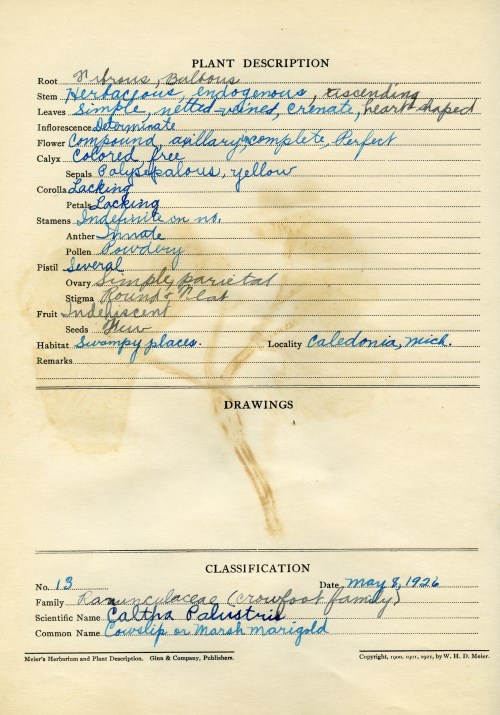 PLANT DESCRIPTION
Root Fibrous, Bulbous
Stem Herbaceous, endogenous, ascending
Leaves Simple, netted-veined, crenate, heart shaped
Inflorescence Determinate
Flower Compound, axillary, incomplete, Perfect
Calyx Colored, free
Sepals Polysepalous, yellow
Corolla Lacking
Petals Lacking
Stamens Indefinite in no.
Anther Innate
Pollen Powdery
Pistil Several
Ovary Simple, parietal
Stigma Round & Flat
Fruit Indehiscent
Seeds Few
Habitat Swampy places. Locality Caledonia, Mich.
Remarks
DRAWINGS
CLASSIFICATION
No. 13 Date May 8, 1926
Family Ranunculaceae (crowfoot family)
Scientific Name Caltha Palustris
Common Name Cowslip or Marsh marigold
Meier's Herbarium and Plant Description. Ginn & Company, Publishers. Copyright, 1900, 1901, 1921, by W. H. D. Meier.